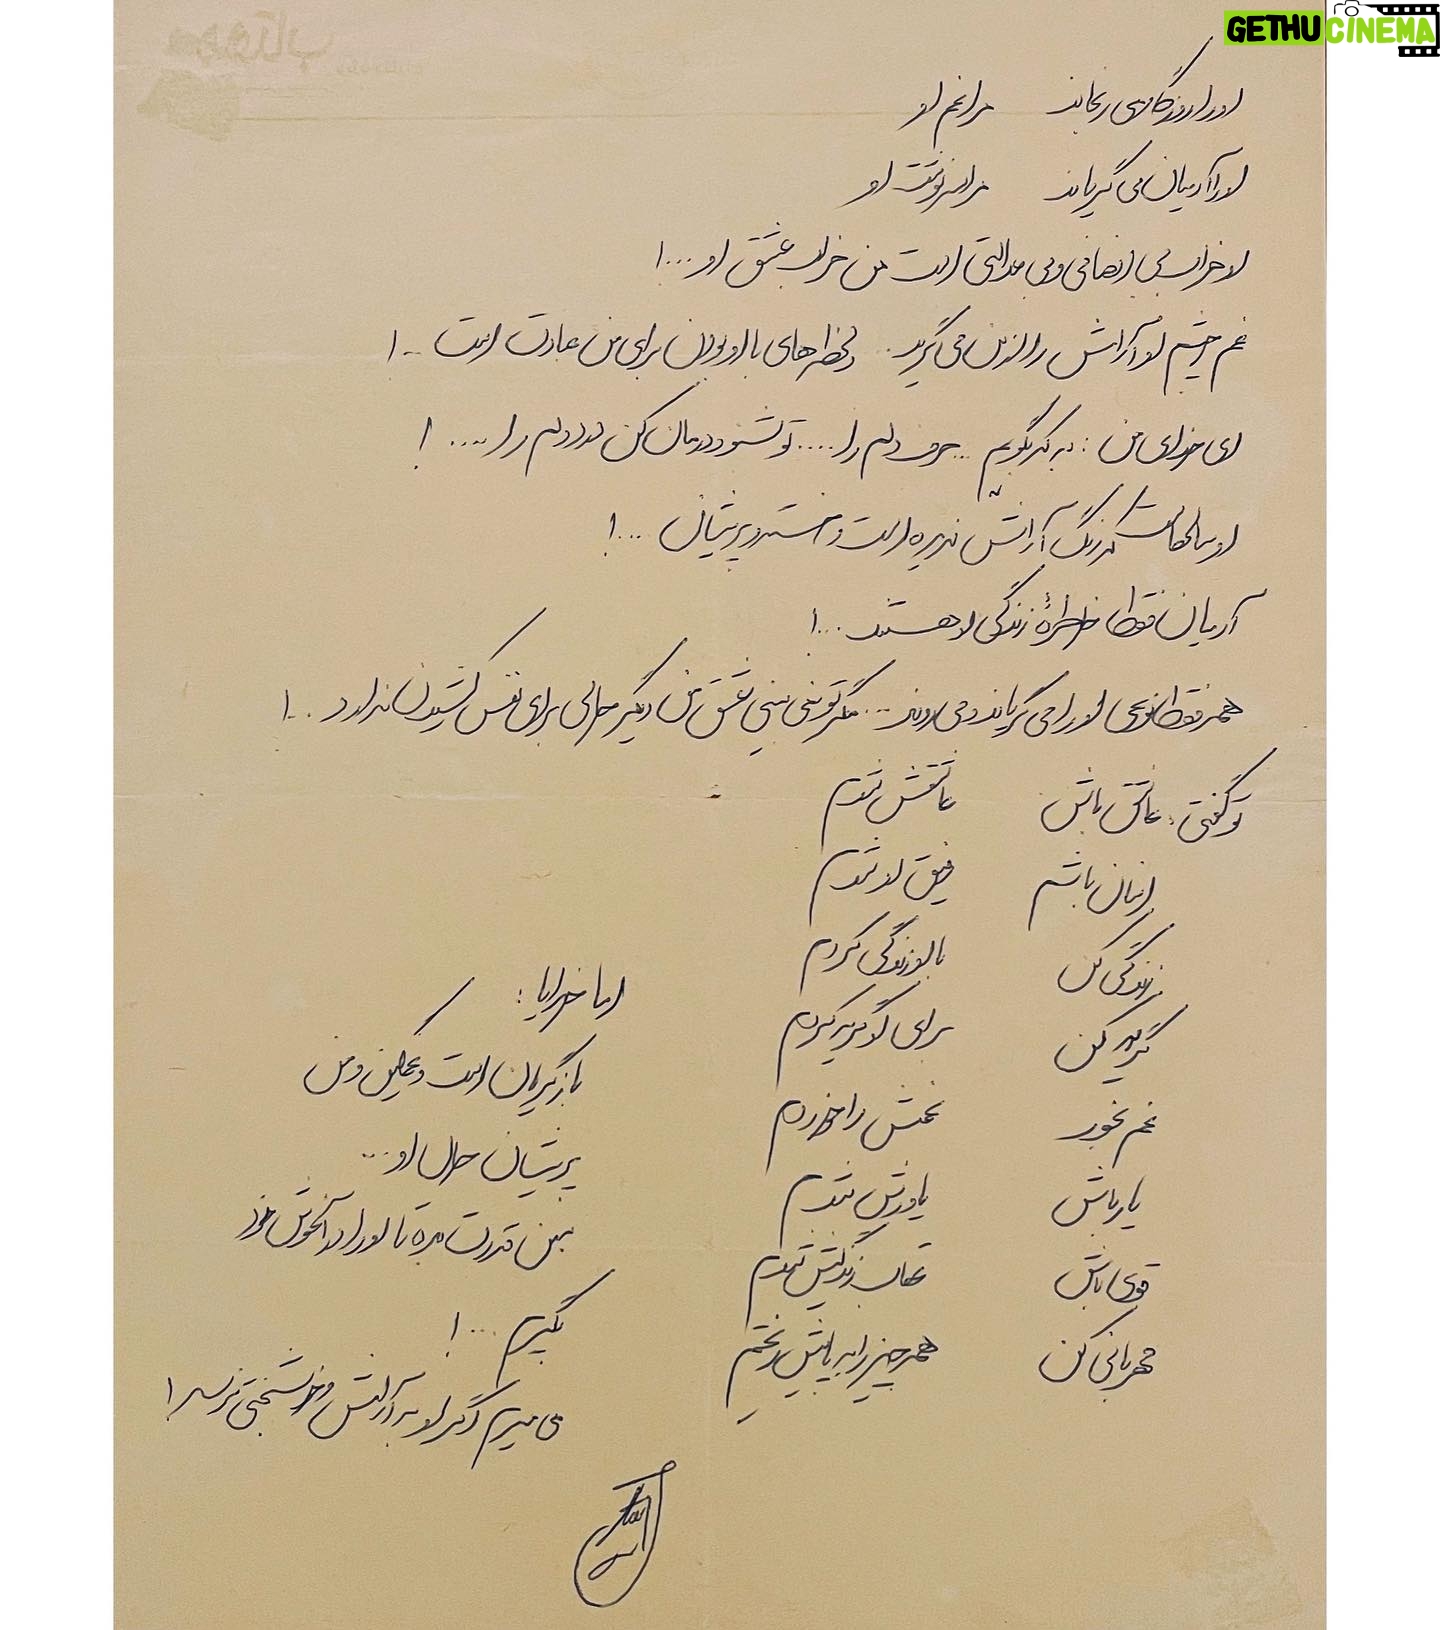 GETHUCINEMA
او را روزگار می رنجاند مرا غم او
او را آدمیان می گریاند مرا سرنوشت او
او خراب بی انصافی و بی عدالتی است من خراب عشق او ...!
غم چشم او آرامش را از من می گیرد... لحظه های با او بودن برای من عبادت است ..!
ای خدای من : به که بگویم ... حرف دلم را .... تو بشنو و درمان کن درد دلم را ....!
او سالهاست که رنگ آرامش ندیده است و خسته و پریشان ...!
آدمیان فقط خاطرهٔ زندگی او هستند ...!
همه فقط نوعی او را می گریاند و می روند ... مگر تو نمی بینی عشق من دیگر حالی برای نفس کشیدن ندارد ..!
تو گفتی : عاشق باش عاشقش شدم
انسان باشم رفیق او شدم
زندگی کن با او زندگی کردم
گریه کن برای او گریه کردم
غم بخور غمش را خوردم
یار باش یاورش شدم
قوی باش زندگیش شدم
مهربانی کن همه چیز را به پایش ریختم
اما خدایا :
باز گریان است و غمگین و من
پریشان حال او ...
بمن قدرت بده تا او را در آغوش خود
بگیرم ...!
می میرم اگر او به آرامش و خوشبختی نرسد !